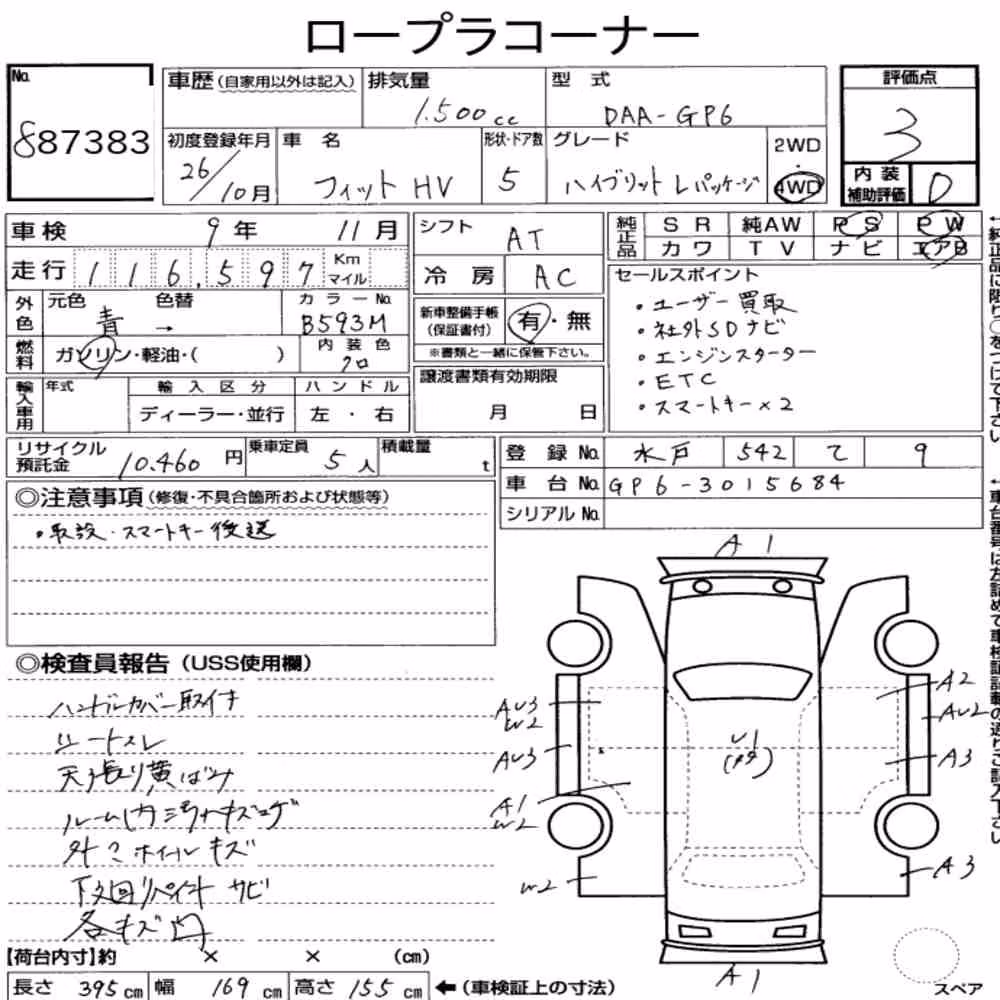 ロープラコーナー
No. 887383
車歴(自家用以外は記入) 排気量 1.500cc 型式 DAA-GP6
初度登録年月 26/10月 車名 フィット HV 形状・ドア数 5 グレード ハイブリット Lパッケージ 2WD・4WD
評価点 3
内装補助評価 D
車検 9年 11月
走行 116,597 Km マイル
外色 元色 青 → 色替 カラーNo. B593M
燃料 ガソリン・軽油・( ) 内装色 クロ
輸入車用 年式 輸入区分 ディーラー・並行 ハンドル 左・右
シフト AT
冷房 AC
新車整備手帳(保証書付) 有・無
※書類と一緒に保管下さい。
譲渡書類有効期限
月 日
純正品 SR 純AW PS PW
カワ TV ナビ エアB
セールスポイント
・ユーザー買取
・社外SDナビ
・エンジンスターター
・ETC
・スマートキー×2
←純正品に限り○をつけて下さい
リサイクル預託金 10.460円 乗車定員 5人 積載量 t
登録No. 水戸 542 て 9
車台No. GP6-3015684
シリアルNo.
←車台番号は左詰めで車検証記載の通りご記入下さい
◎注意事項(修復・不具合箇所および状態等)
・取説・スマートキー後送
◎検査員報告(USS使用欄)
ハンドルカバー取付キ
シートスレ
天張り黄ばみ
ルーム内汚れキズコゲ
外ミホイールキズ
下廻リペイント サビ
各キズ凹
A1
AU3
W2
AU3
A1
W2
W2
U1
A2
AU2
A3
A3
A1
スペア
【荷台内寸】約 × × (cm)
長さ 395cm 幅 169cm 高さ 155cm ←(車検証上の寸法)